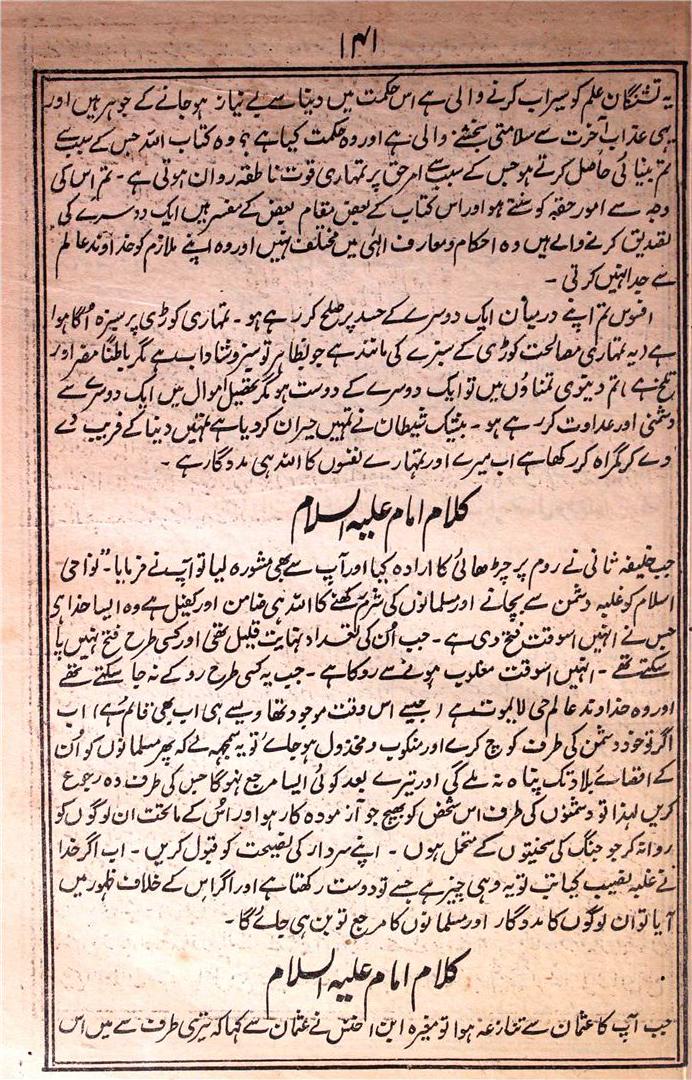 ۱۴۱
یہ تشنگان علم کو سیراب کرنے والی ہے اس حکمت میں دینا سے بے نیاز ہوجانے کے جوہر ہیں اور
یہی عذاب آخرت سے سلامتی بخشنے والی ہے اور وہ حکمت کیا ہے؟ وہ کتاب اللہ جس کے سبب سے
تم بینائی حاصل کرتے ہو جس کے سبب سے امر حق پر تمہاری قوت ناطقہ رواں ہوتی ہے ۔ تم اس کی
وجہ سے امور حقہ کو سنتے ہو اور اس کتاب کے بعض مقام بعض کے مفسر ہیں ایک دوسرے کی
تصدیق کرنے والے ہیں وہ احکام و معارف الہٰی میں مختلف نہیں اور وہ اپنے ملازم کو خداوند عالم
سے جدا نہیں کرتی ۔
افسوس تم اپنے درمیان ایک دوسرے کے حسد پر صلح کر رہے ہو ۔ تمہاری کوڑی پر سبزہ اُگا ہوا
ہے (یہ تمہاری مصالحت کوڑی کے سبزے کی مانند ہے جو بظاہر تو سبز و شاداب ہے مگر باطناً مضر اور
تلخ ہے) تم دینوی تمناؤں میں تو ایک دوسرے کے دوست ہو مگر تحصیل اموال میں ایک دوسرے سے
دشمنی اور عداوت کر رہے ہو ۔ بیشک شیطان نے تمہیں حیران کر دیا ہے تمہیں دینا کے فریب نے
دے کر گمراہ کر رکھا ہے اب میرے اور تمہارے نفسوں کا اللہ ہی مددگار ہے ۔
کلام امام علیہ السلام
جب خلیفہ ثانی نے روم پر چڑھائی کا ارادہ کیا اور آپ سے بھی مشورہ لیا تو آپ نے فرمایا ۔ "نواحی
اسلام کو غلبہ دشمن سے بچانے اور مسلمانوں کی شرم رکھنے کا اللہ ہی ضامن اور کفیل ہے وہ ایسا خدا ہی
جس نے انہیں اسوقت فتح دی ہے ۔ جب اُن کی تعداد نہایت قلیل تھی اور کسی طرح فتح نہیں پا
سکتے تھے ۔ انہیں اسوقت مغلوب ہونے سے روکا ہے ۔ جب یہ کسی طرح روکے نہ جا سکتے تھے
اور وہ خداوند عالم حی لایموت ہے (جیسے اس وقت موجود تھا ویسے ہی اب بھی قائم ہے) اب
اگر تو خود دشمن کی طرف کوچ کرے اور منکوب و مخذول ہو جائے تو یہ سمجھ لے کہ پھر مسلمانوں کو اُن
کے اقصائے بلاد تک پناہ نہ ملے گی اور تیرے بعد کوئی ایسا مرجع نہوگا جس کی طرف وہ رجوع
کریں لہذا تو دشمنوں کی طرف اس شخص کو بھیج جو آزمودہ کار ہو اور اُس کے ماتحت ان لوگوں کو
روانہ کر جو جنگ کی سختیوں کے متحمل ہوں ۔ اپنے سردار کی نصیحت کو قبول کریں ۔ اب اگر خدا
نے غلبہ نصیب کیا تب تو یہ وہی چیز ہے جسے تو دوست رکھتا ہے اور اگر اس کے خلاف ظہور میں
آیا تو ان لوگوں کا مددگار اور مسلمانوں کا مرجع تو بن ہی جائے گا ۔
کلام امام علیہ السلام
جب آپ کا عثمان سے تنازعہ ہوا تو مغیرہ ابن اخنس نے عثمان سے کہا کہ تیری طرف سے میں اس